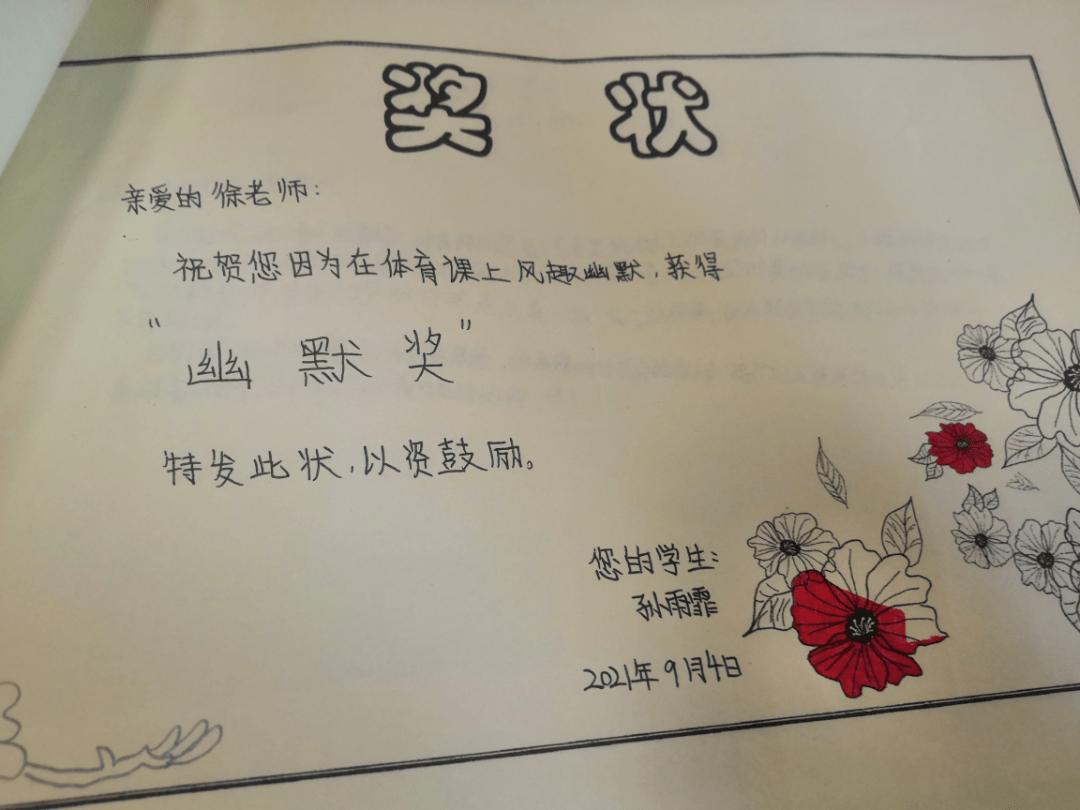 奖 状
亲爱的徐老师:
祝贺您因为在体育课上风趣幽默,获得
"幽 默 奖"
特发此状,以资鼓励。
您的学生:
孙雨霏
2021年9月4日